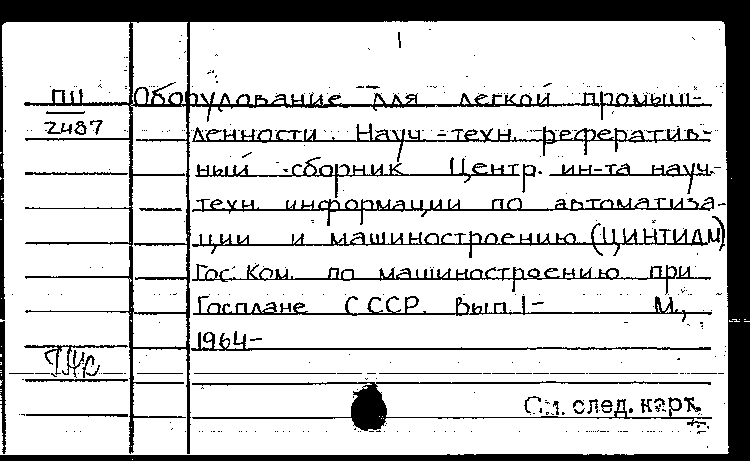 ПII Оборудование для легкой промыш-
2487 ленности. Науч.-техн. рефератив-
ный сборник Центр. ин-та науч.-
техн. информации по автоматиза-
ции и машиностроению (ЦИНТИАМ)
Гос. Ком. по машиностроению при
Госплане СССР. Вып. 1- М.,
1964-
См. след. карт.